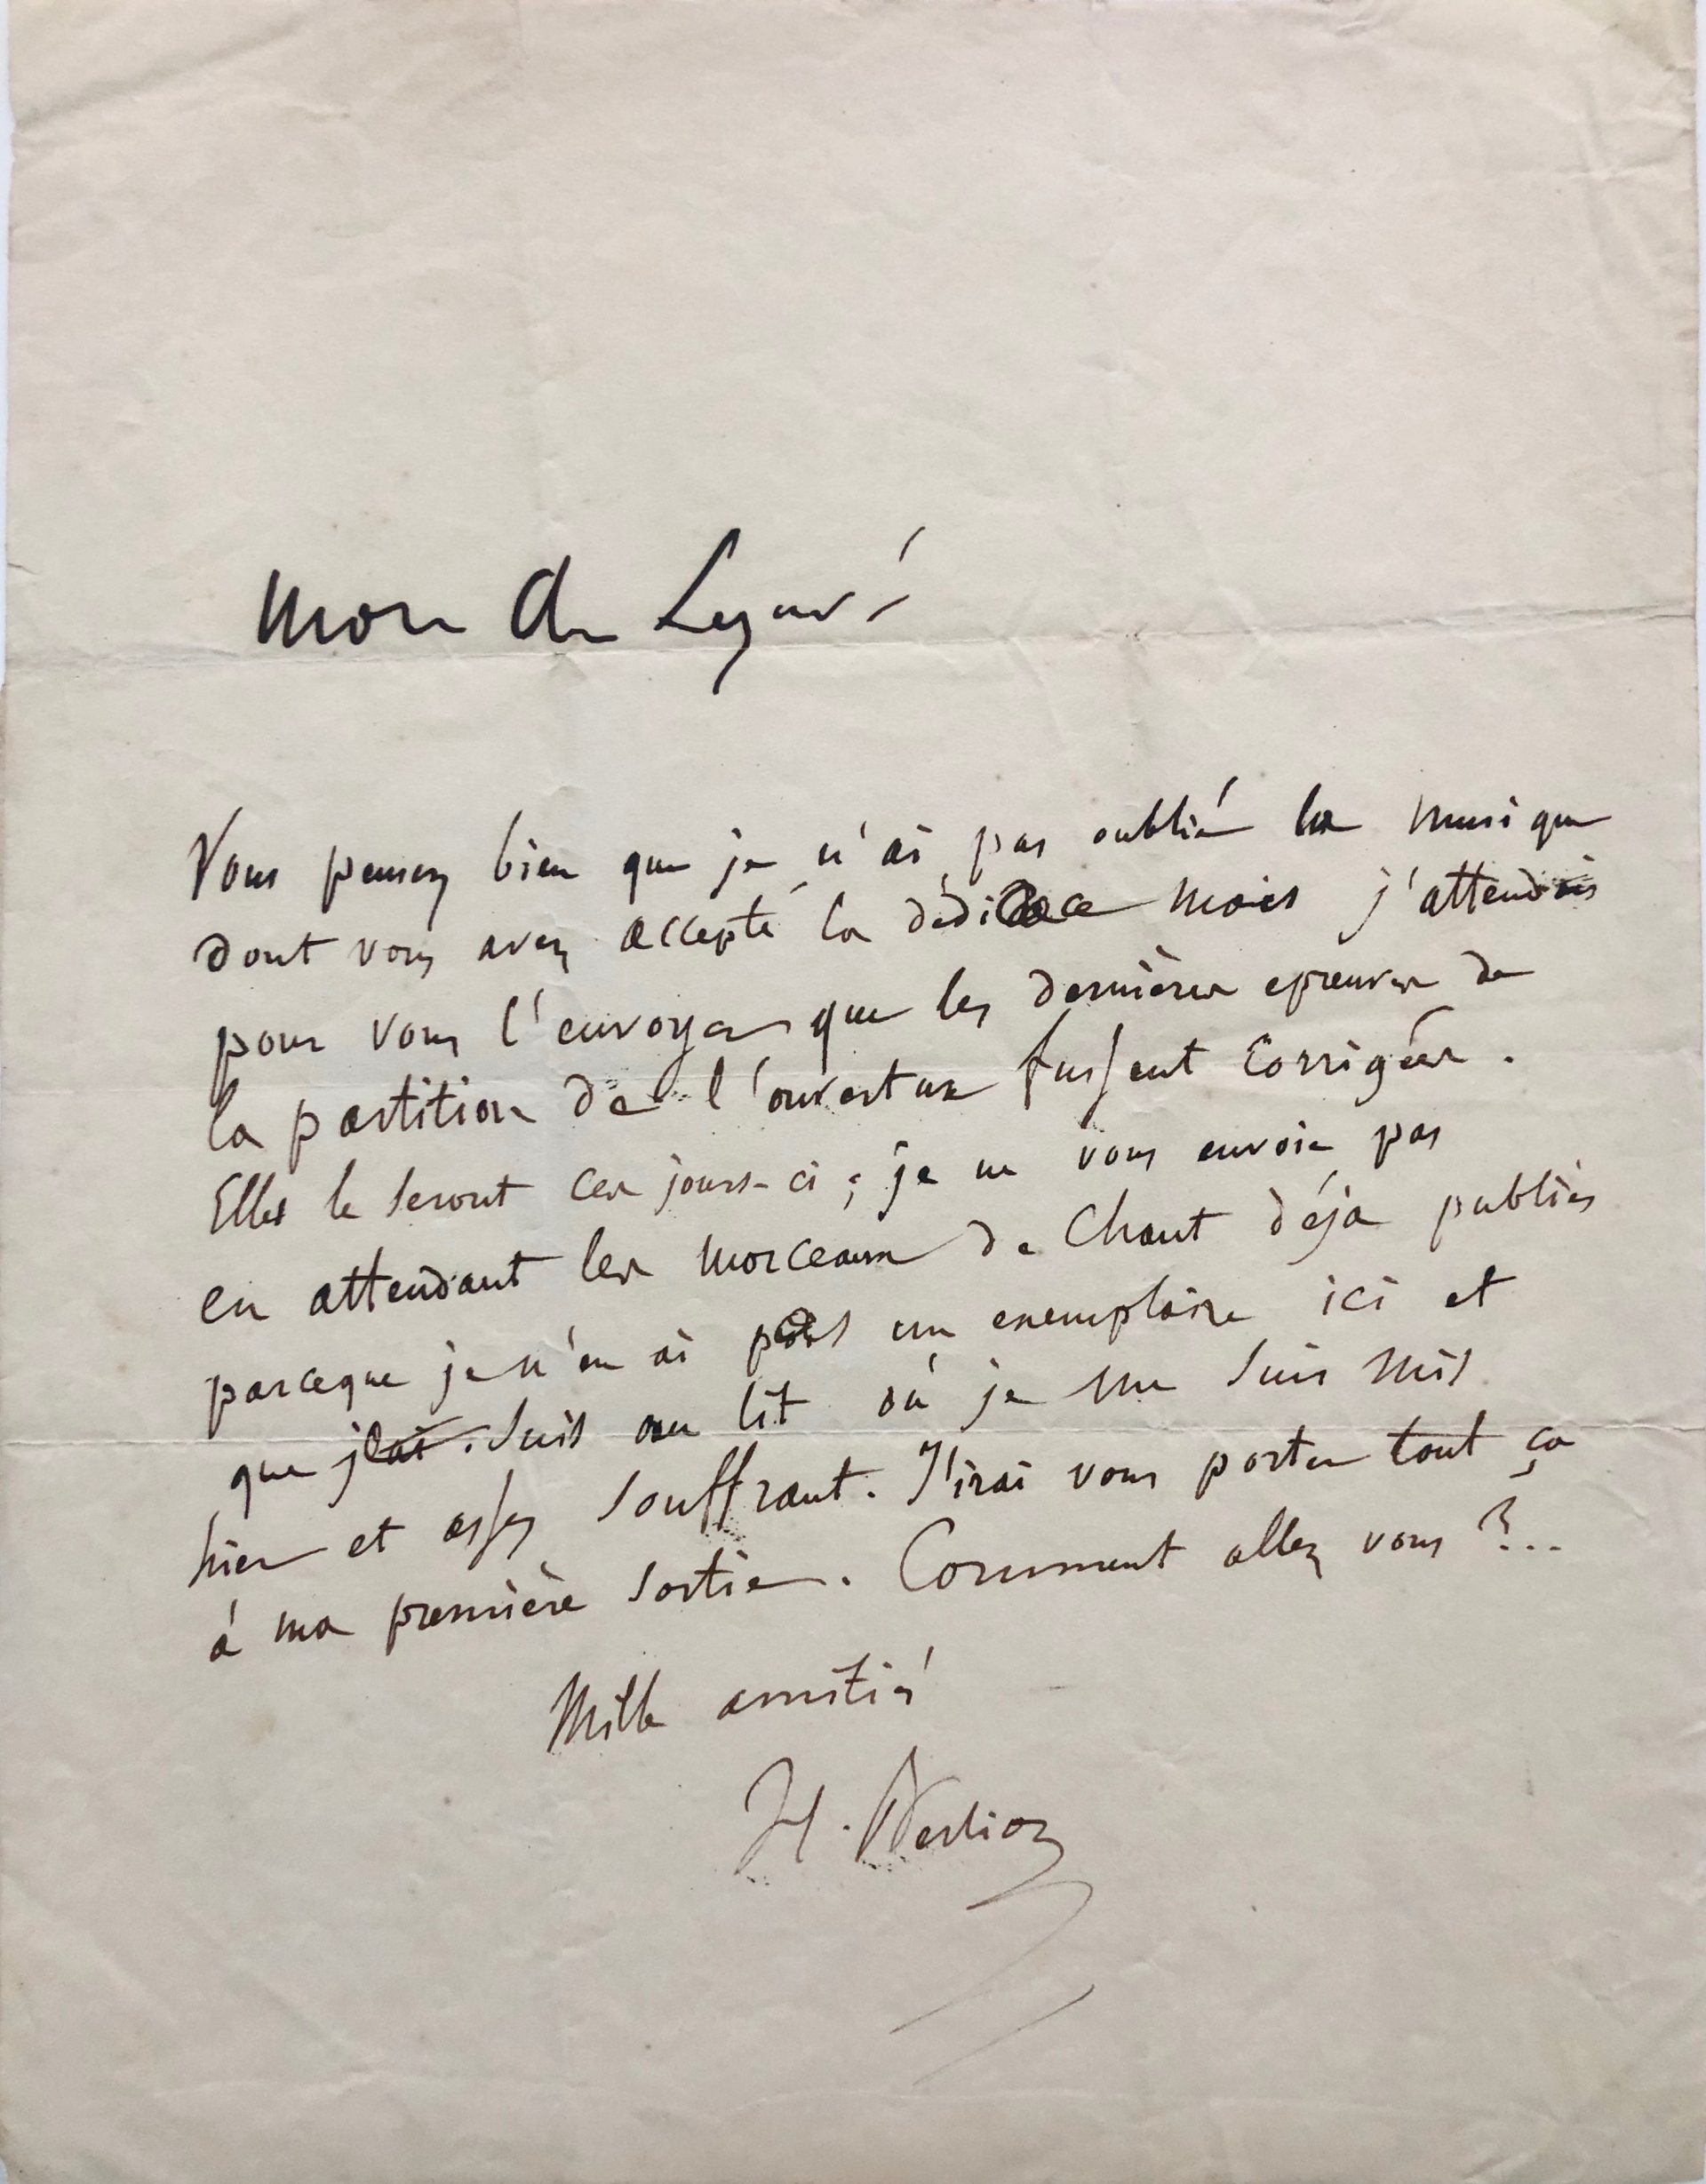 Mon cher Legouvé
Vous pensez bien que je n'ai pas oublié la musique
dont vous avez accepté la dédicace mais j'attendais
pour vous l'envoyer que les dernières epreuves de
la partition de l'ouverture fussent corrigées.
Elles le seront ces jours-ci ; je ne vous envoie pas
en attendant les morceaux de Chant déja publiés
parceque je n'en ai pas un exemplaire ici et
que je suis au lit où je me suis mis
hier et assez souffrant. J'irai vous porter tout ça
à ma première sortie. Comment allez vous ?...
Mille amitiés
H. Berlioz